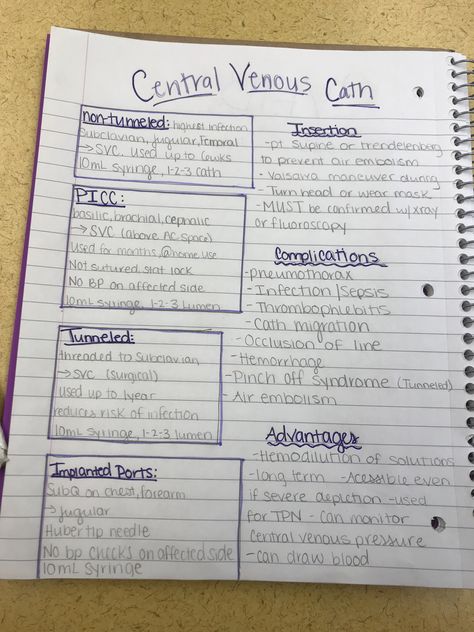 Central Venous Cath
non-tunneled: highest infection
Subclavian, jugular, Femoral
→ SVC. used up to 6wks
10mL syringe, 1-2-3 cath
PICC:
basilic, brachial, cephalic
→ SVC (above AC space)
used for months, @home use
Not sutured, stat lock
NO BP on affected side
10mL syringe, 1-2-3 lumen
Tunneled:
threaded to Subclavian
→ SVC (surgical)
used up to 1year
reduces risk of infection
10mL syringe, 1-2-3 lumen
Implanted Ports:
SubQ on chest, forearm
→ jugular
Huber tip needle
No bp checks on affected side
10mL syringe
Insertion
- pt supine or trendelenberg
to prevent air embolism
- valsalva maneuver during
- Turn head or wear mask
- MUST be confirmed w/xray
or fluoroscopy
Complications
- pneumothorax
- Infection/Sepsis
- Thrombophlebitis
- Cath migration
- Occlusion of line
- Hemorrhage
- Pinch off syndrome (Tunneled)
- Air embolism
Advantages
- Hemodilution of solutions
- long term - Acessible even
if severe depletion - used
for TPN - can monitor
central venous pressure
- can draw blood